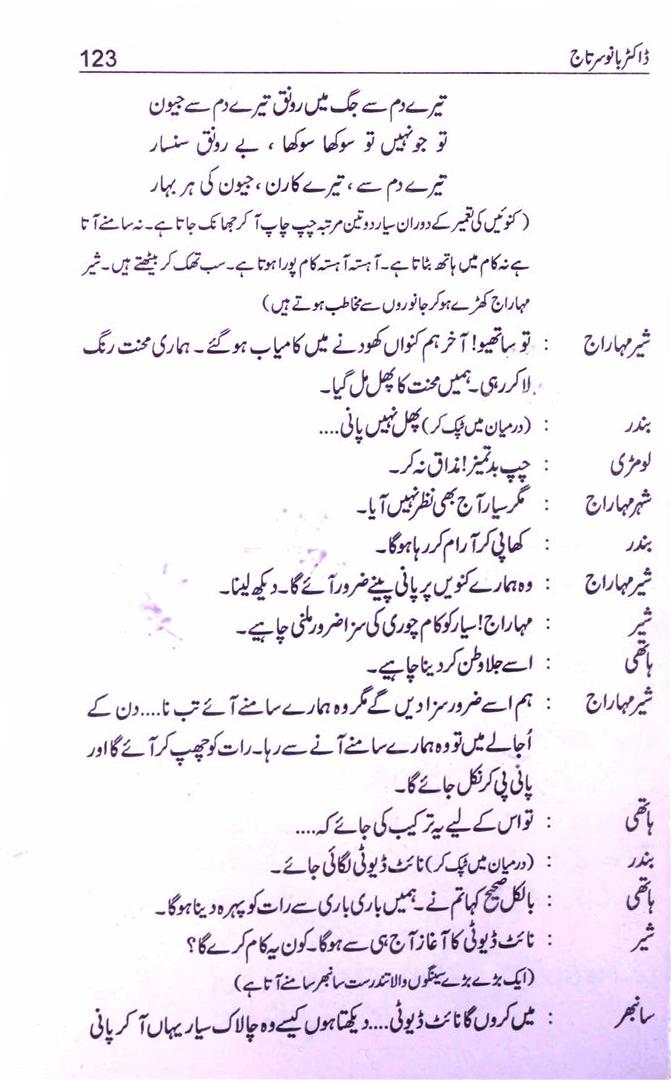 ڈاکٹر بانو سرتاج 123
تیرے دم سے جگ میں رونق تیرے دم سے جیون
تو جو نہیں تو سوکھا سوکھا ، بے رونق سنسار
تیرے دم سے ، تیرے کارن ، جیون کی ہر بہار
(کنوئیں کی تعمیر کے دوران سیار دو تین مرتبہ چپ چاپ آ کر جھانک جاتا ہے۔ نہ سامنے آتا
ہے نہ کام میں ہاتھ بٹاتا ہے۔ آہستہ آہستہ کام پورا ہوتا ہے۔ سب تھک کر بیٹھتے ہیں۔ شیر
مہاراج کھڑے ہو کر جانوروں سے مخاطب ہوتے ہیں)
شیر مہاراج : تو ساتھیو! آخر ہم کنواں کھودنے میں کامیاب ہو گئے۔ ہماری محنت رنگ
لا کر رہی۔ ہمیں محنت کا پھل مل گیا۔
بندر : (درمیان میں ٹپک کر) پھل نہیں پانی....
لومڑی : چپ بدتمیز! مذاق نہ کر۔
شہر مہاراج : مگر سیار آج بھی نظر نہیں آیا۔
بندر : کھا پی کر آرام کر رہا ہوگا۔
شیر مہاراج : وہ ہمارے کنویں پر پانی پینے ضرور آئے گا۔ دیکھ لینا۔
شیر : مہاراج! سیار کو کام چوری کی سزا ضرور ملنی چاہیے۔
ہاتھی : اسے جلا وطن کر دینا چاہیے۔
شیر مہاراج : ہم اسے ضرور سزا دیں گے مگر وہ ہمارے سامنے آئے تب نا.... دن کے
اُجالے میں تو وہ ہمارے سامنے آنے سے رہا۔ رات کو چھپ کر آئے گا اور
پانی پی کر نکل جائے گا۔
ہاتھی : تو اس کے لیے یہ ترکیب کی جائے کہ....
بندر : (درمیان میں ٹپک کر) نائٹ ڈیوٹی لگائی جائے۔
ہاتھی : بالکل صحیح کہا تم نے۔ ہمیں باری باری سے رات کو پہرہ دینا ہوگا۔
شیر : نائٹ ڈیوٹی کا آغاز آج ہی سے ہوگا۔ کون یہ کام کرے گا؟
(ایک بڑے بڑے سینگوں والا تندرست سانبھر سامنے آتا ہے)
سانبھر : میں کروں گا نائٹ ڈیوٹی.... دیکھتا ہوں کیسے وہ چالاک سیار یہاں آ کر پانی